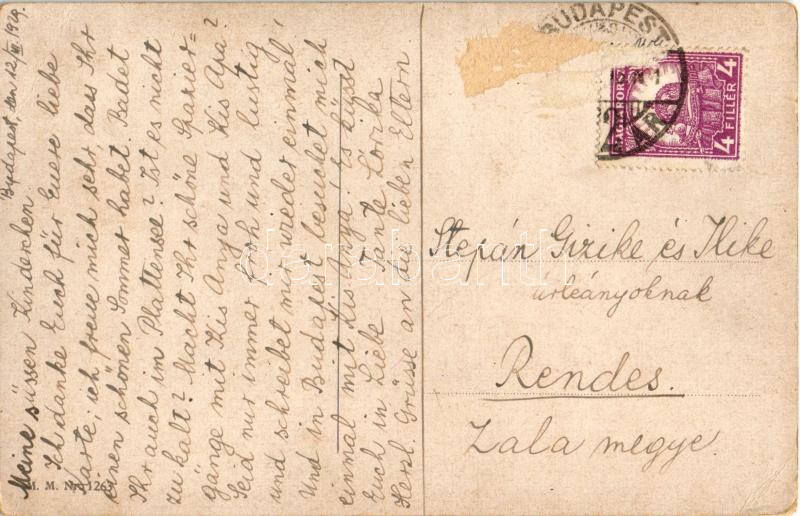 Budapest, den 12/VI. 1929.
Meine süssen Kinderchen
Ich danke Euch für Euere liebe
Karte; ich freue mich sehr dass Ihr
einen schönen Sommer habt. Badet
Ihr auch im Plattensee? Ist es nicht
zu kalt? Macht Ihr schöne Spazier=
gänge mit Kis Anya und Kis Apa?
Seid nur immer brav und lustig
und schreibet mir wieder einmal!
Und in Budapest besuchet mich
einmal mit Kis Anya! Es küsst
Euch in Liebe Tante Lorika
Herzl. Grüsse an die lieben Eltern
M. M. Nr. 1265
BUDAPEST
MAGYARORSZ
4 4
FILLÉR
Stepán Gizike és Ilike
úrleányoknak
Rendes.
Zala megye.
darabanth